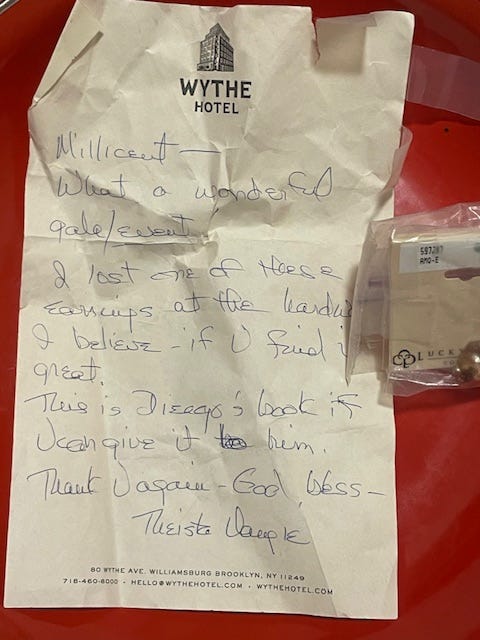 WYTHE
HOTEL
Millicent —
What a wonderful
gala/event!
I lost one of these
earrings at the
I believe - if U find
great.
This is Diego's book if
U can give it to him.
Thank U again - God bless -
80 WYTHE AVE. WILLIAMSBURG BROOKLYN, NY 11249
718-460-8000 • HELLO@WYTHEHOTEL.COM • WYTHEHOTEL.COM
597287
RMO-E
LUCK